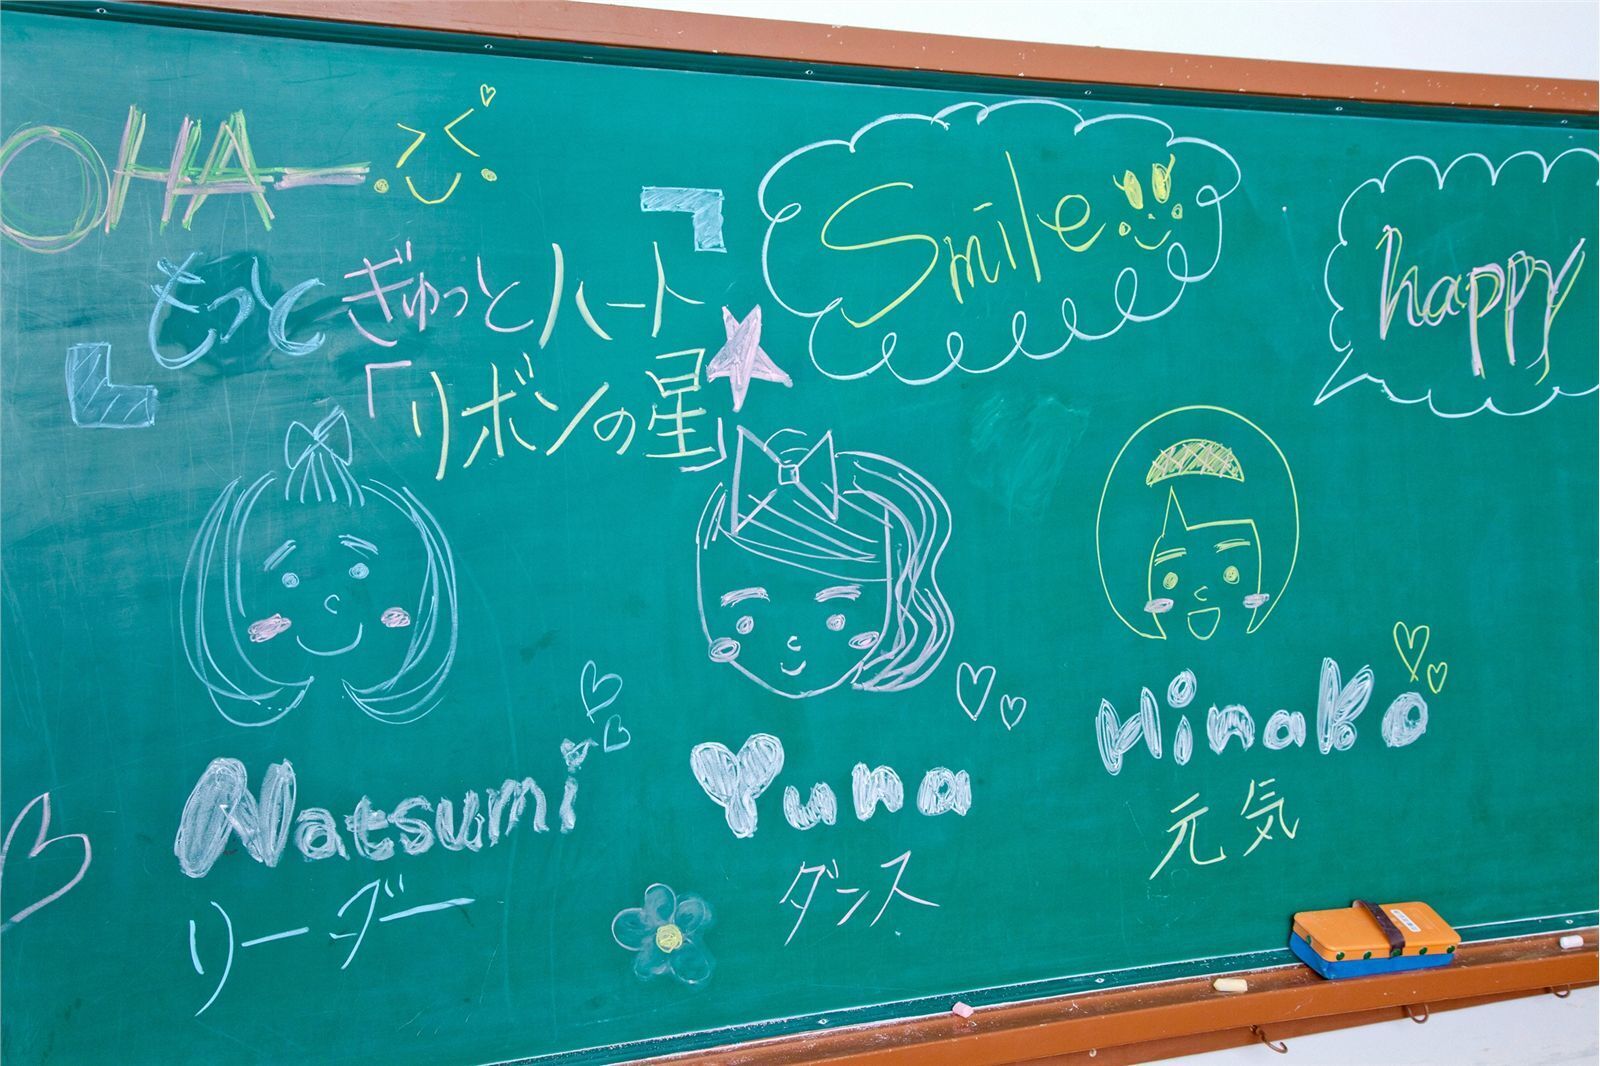 OHAー
Smile
happy
もっとぎゅっとハート
「リボンの星」
Natsumi
Yuna
Hinako
リーダー
ダンス
元気